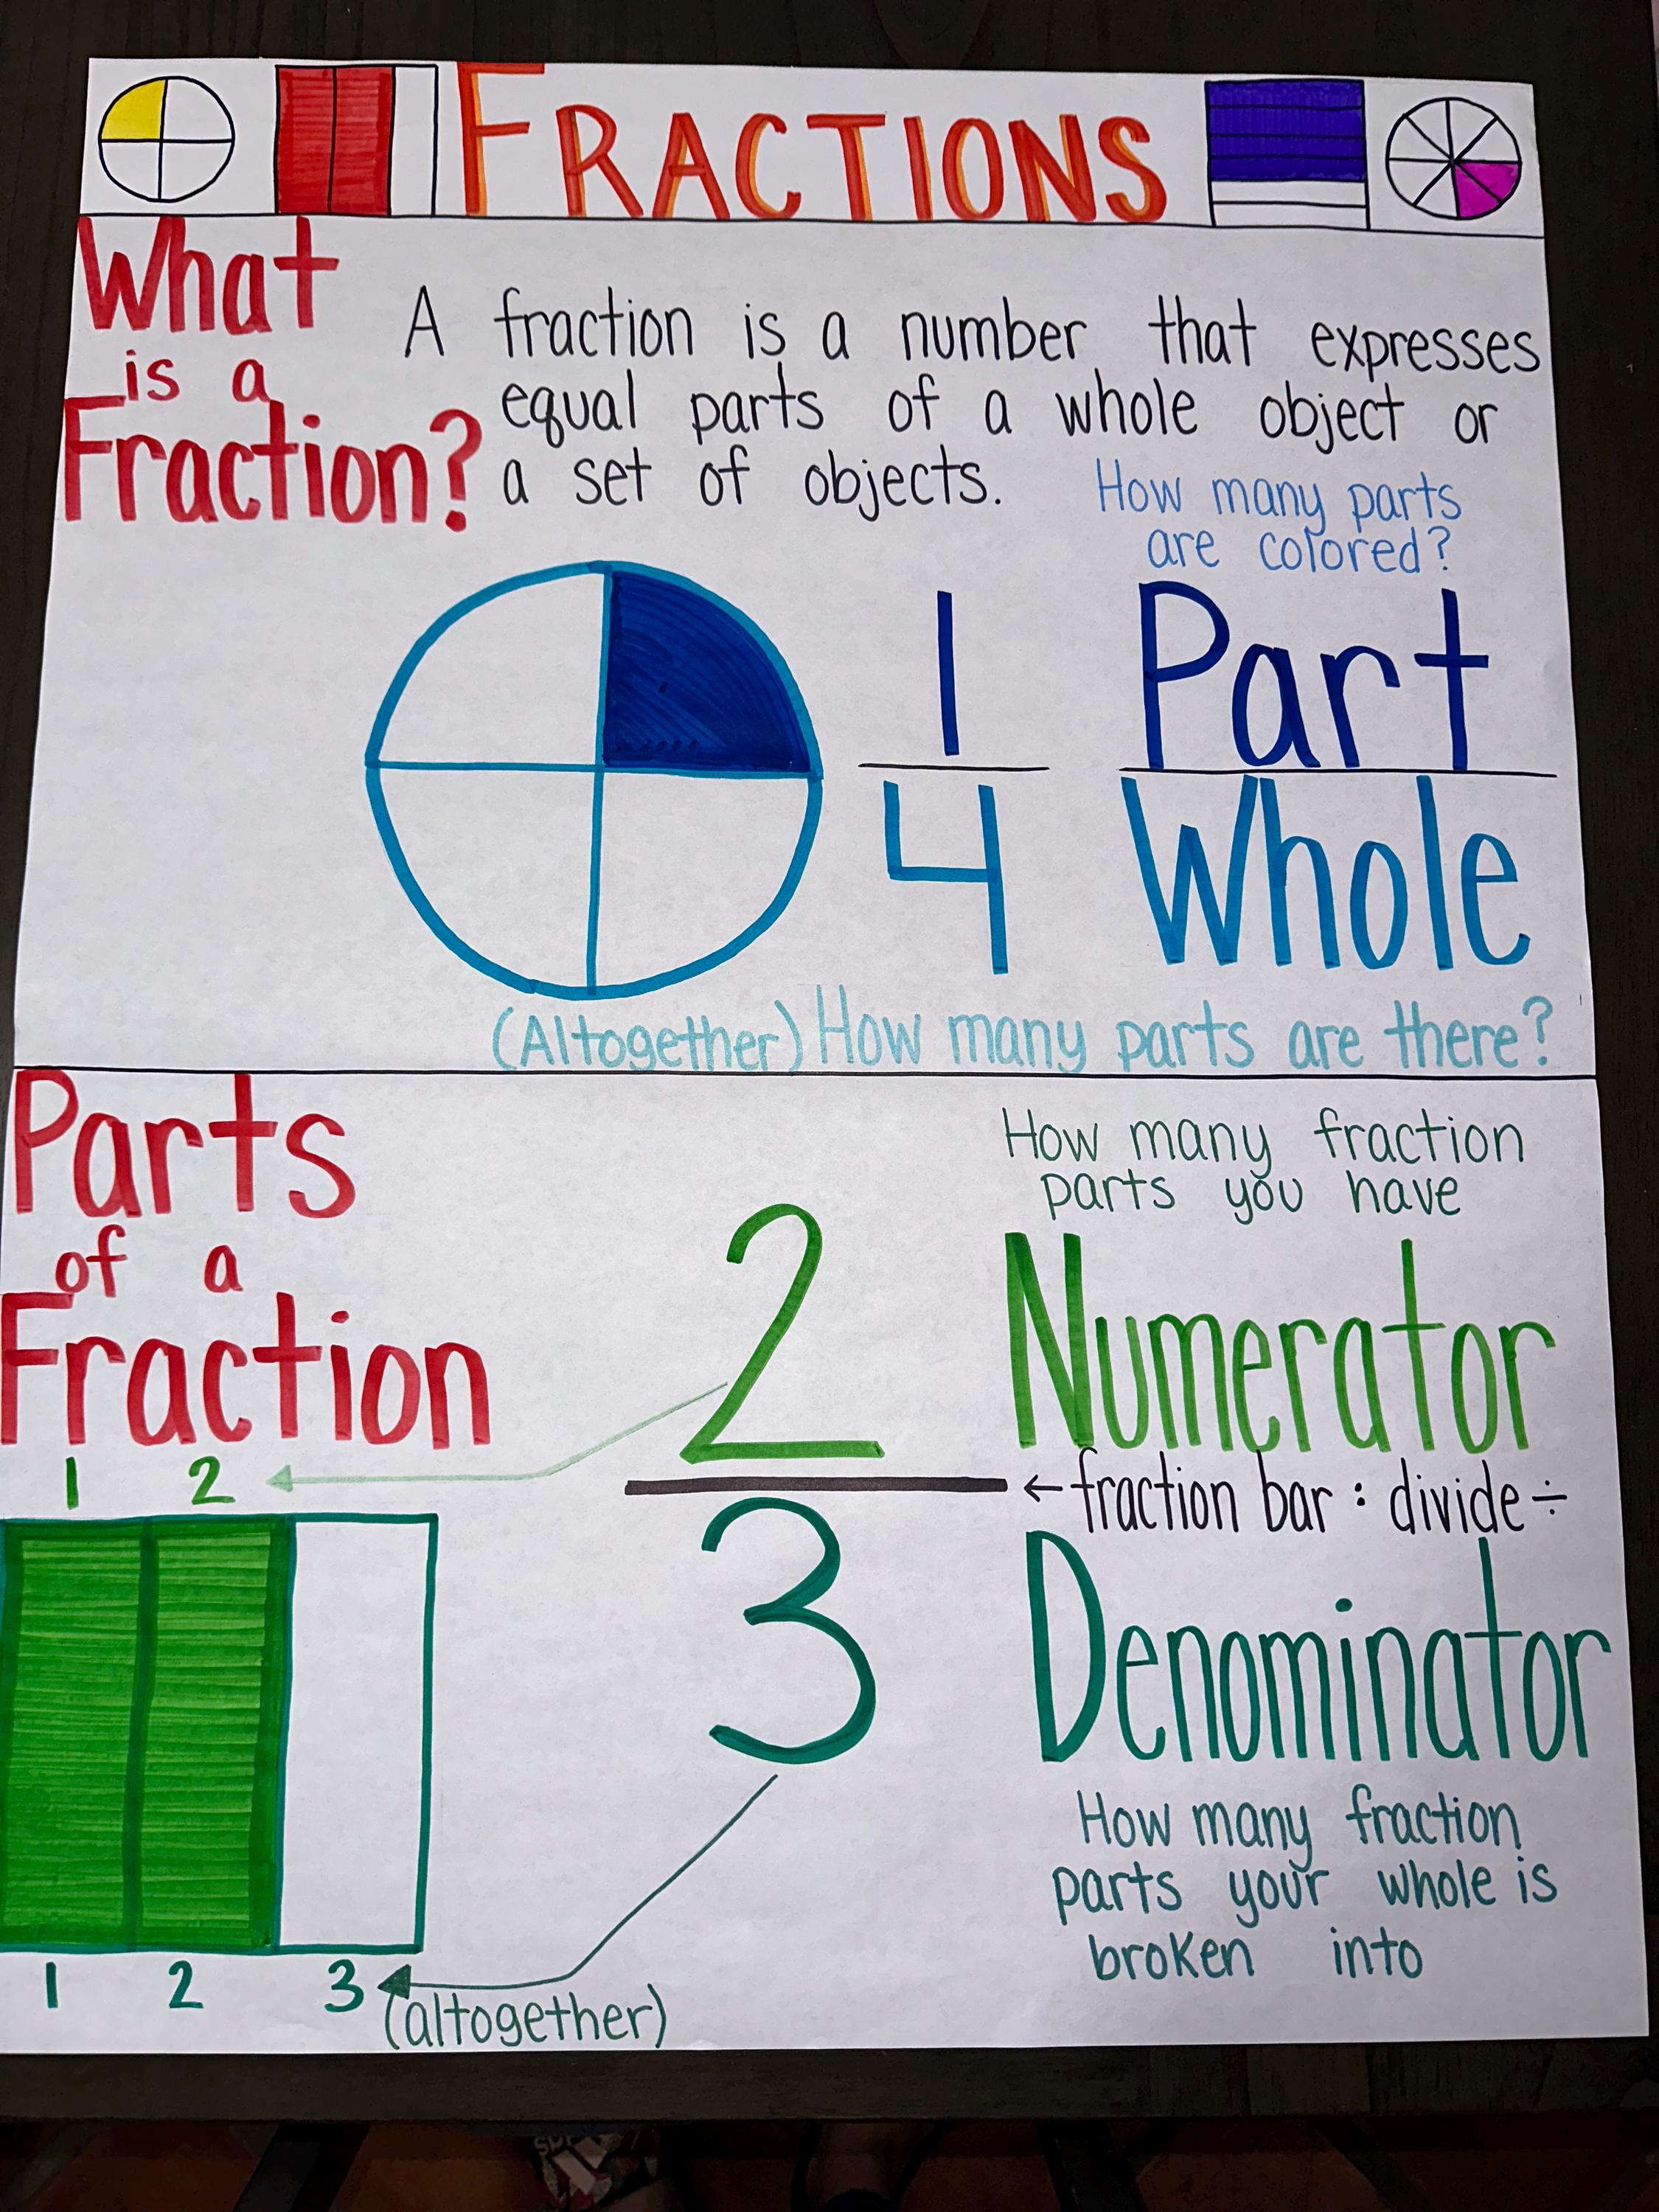 FRACTIONS
What
is a
Fraction?
A fraction is a number that expresses
equal parts of a whole object or
a set of objects.
How many parts
are colored?
1
4
Part
Whole
(Altogether) How many parts are there?
Parts
of a
Fraction
How many fraction
parts you have
2
Numerator
← fraction bar : divide ÷
3
Denominator
How many fraction
parts your whole is
broken into
1 2
1 2 3
(altogether)